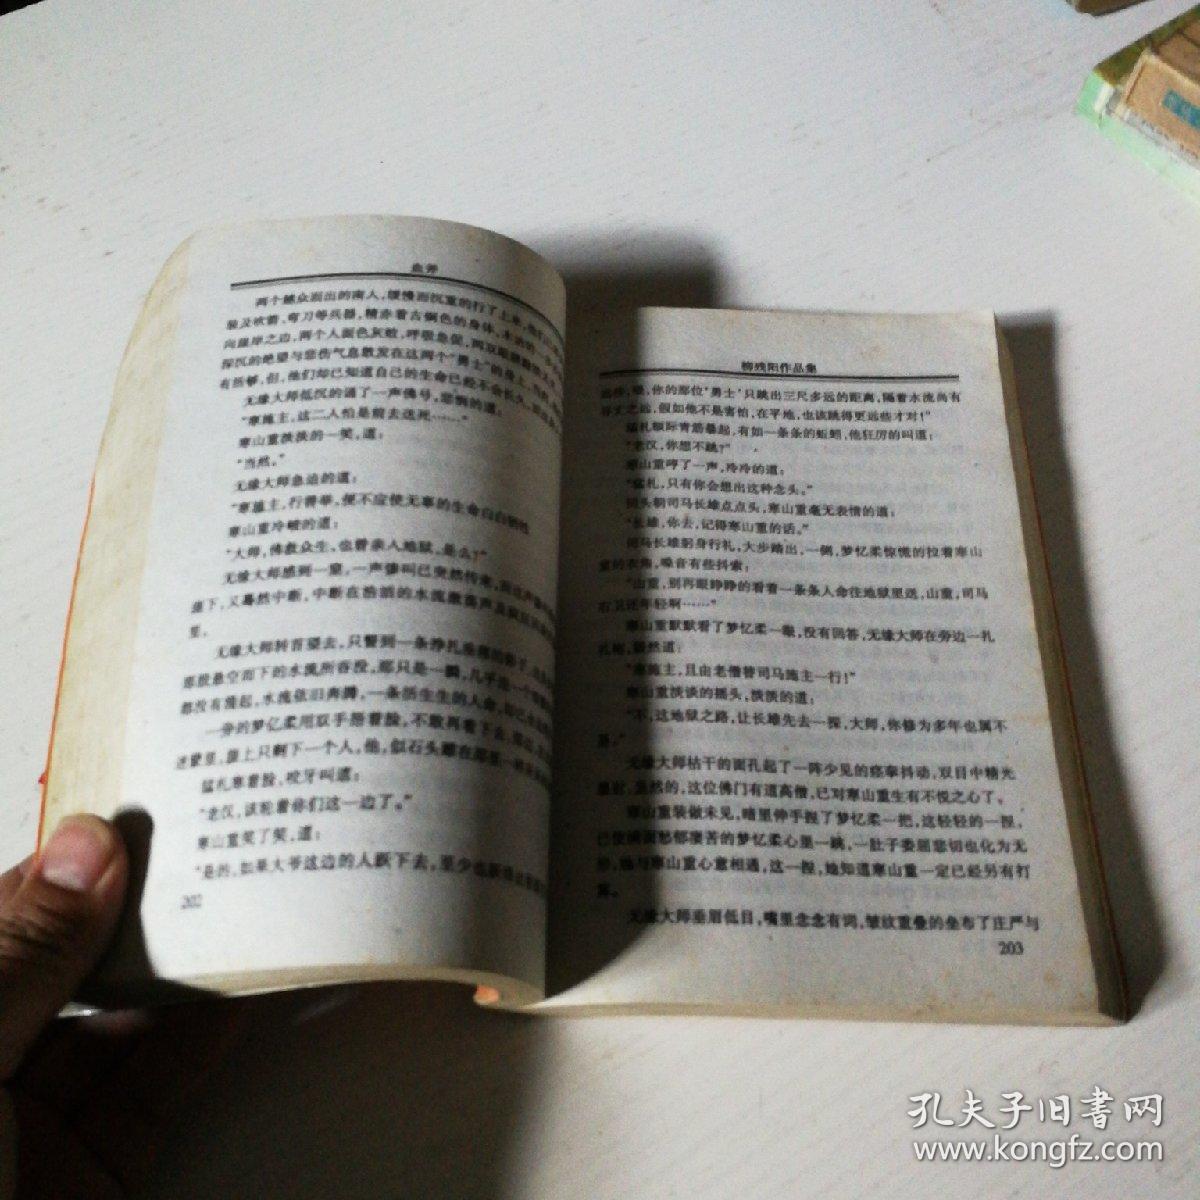 血斧
两个越众而出的南人，缓慢而沉重的行了上来，他们
装及吹箭、弯刀等兵器，精赤着古铜色的身体，木讷的一
向崖岸之边，两个人面色灰蚊，呼吸急促，两双眼睛
深沉的绝望与悲伤气息散发在这两个"勇士"的身上，
有活够，但，他们却已知道自己的生命已经不会长久
无缘大师低沉的诵了一声佛号，悲悯的道：
"寒施主，这二人怕是前去送死……"
寒山重淡淡的一笑，道：
"当然。"
无缘大师急迫的道：
"寒施主，行善举，便不应使无辜的生命白白牺牲
寒山重冷峻的道：
"大师，佛救众生，也替亲人地狱，是么？"
无缘大师感到一窒，一声惨叫已突然传来，
崖下，又蓦然中断，中断在浩浩的水流激荡声及
里。
无缘大师转首望去，只瞥到一条挣扎
那股悬空而下的水流所吞没，那只是一瞬，几乎连一个
都没有溅起，水流依旧奔腾，一条活生生的人命，却已
一旁的梦忆柔用双手捂着脸，不敢再看下去，那边，
进蒙里，崖上只剩下一个人，他，似石头雕在那里一样
猛札寒着脸，咬牙叫道：
"老汉，该轮着你们这一边了。"
寒山重笑了笑，道：
"是的，如果大爷这边的人跃下去，至少也跃得比
202
柳残阳作品集
你的那位"勇士"只跳出三尺多远的距离，隔着水流尚有
寻丈之远，假如他不是害怕，在平地，也该跳得更远些才对！"
猛札额际青筋暴起，有如一条条的蚯蚓，他狂厉的叫道：
"老汉，你想不跳？"
寒山重哼了一声，冷冷的道：
"猛札，只有你会想出这种念头。"
回头朝司马长雄点点头，寒山重毫无表情的道：
"长雄，你去，记得寒山重的话。"
司马长雄躬身行礼，大步踏出，一侧，梦忆柔惊慌的拉着寒山
重的衣角，嗓音有些抖索：
"山重，别再眼睁睁的看着一条条人命往地狱里送，山重，司马
右卫还年轻啊……"
寒山重默默看了梦忆柔一眼，没有回答，无缘大师在旁边一扎
扎袍，毅然道：
"寒施主，且由老僧替司马施主一行！"
寒山重淡谈的摇头，淡淡的道：
"不，这地狱之路，让长雄先去一探，大师，你修为多年也属不
易。"
无缘大师枯干的面孔起了一阵少见的痉挛抖动，双目中精光
显然的，这位佛门有道高僧，已对寒山重生有不悦之心了。
寒山重装做未见，暗里伸手捏了梦忆柔一把，这轻轻的一捏，
已使满面愁郁凄苦的梦忆柔心里一跳，一肚子委屈悲切也化为无
形，她与寒山重心意相通，这一捏，她知道寒山重一定已经另有打
算。
无缘大师垂眉低目，嘴里念念有词，皱纹重叠的垒布了庄严与
203
孔夫子旧书网
www.kongfz.com